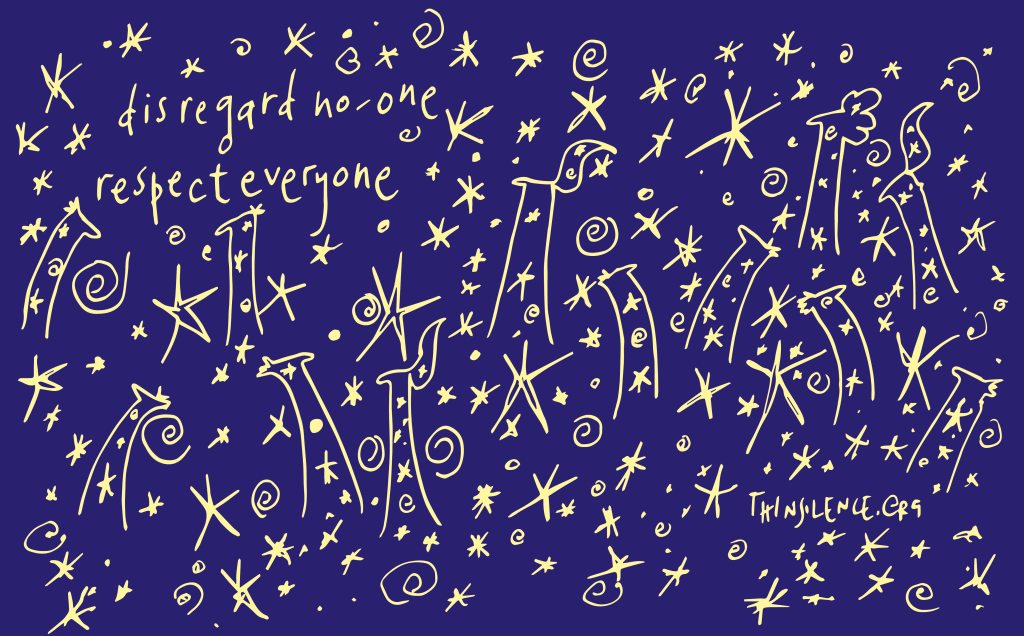 disregard no-one
respect everyone
THINSILENCE.ORG